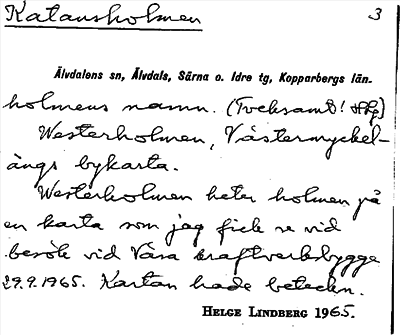 Katausholmen 3
Älvdalens sn, Älvdals, Särna o. Idre tg, Kopparbergs län.
holmens namn. (Tveksamt! HLg)
Westerholmen, Västermyckel-
ängs bykarta.
Westerholmen heter holmen på
en karta som jag fick se vid
besök vid Våsa kraftverksbygge
29.9.1965. Kartan hade beteckn.
HELGE LINDBERG 1965.